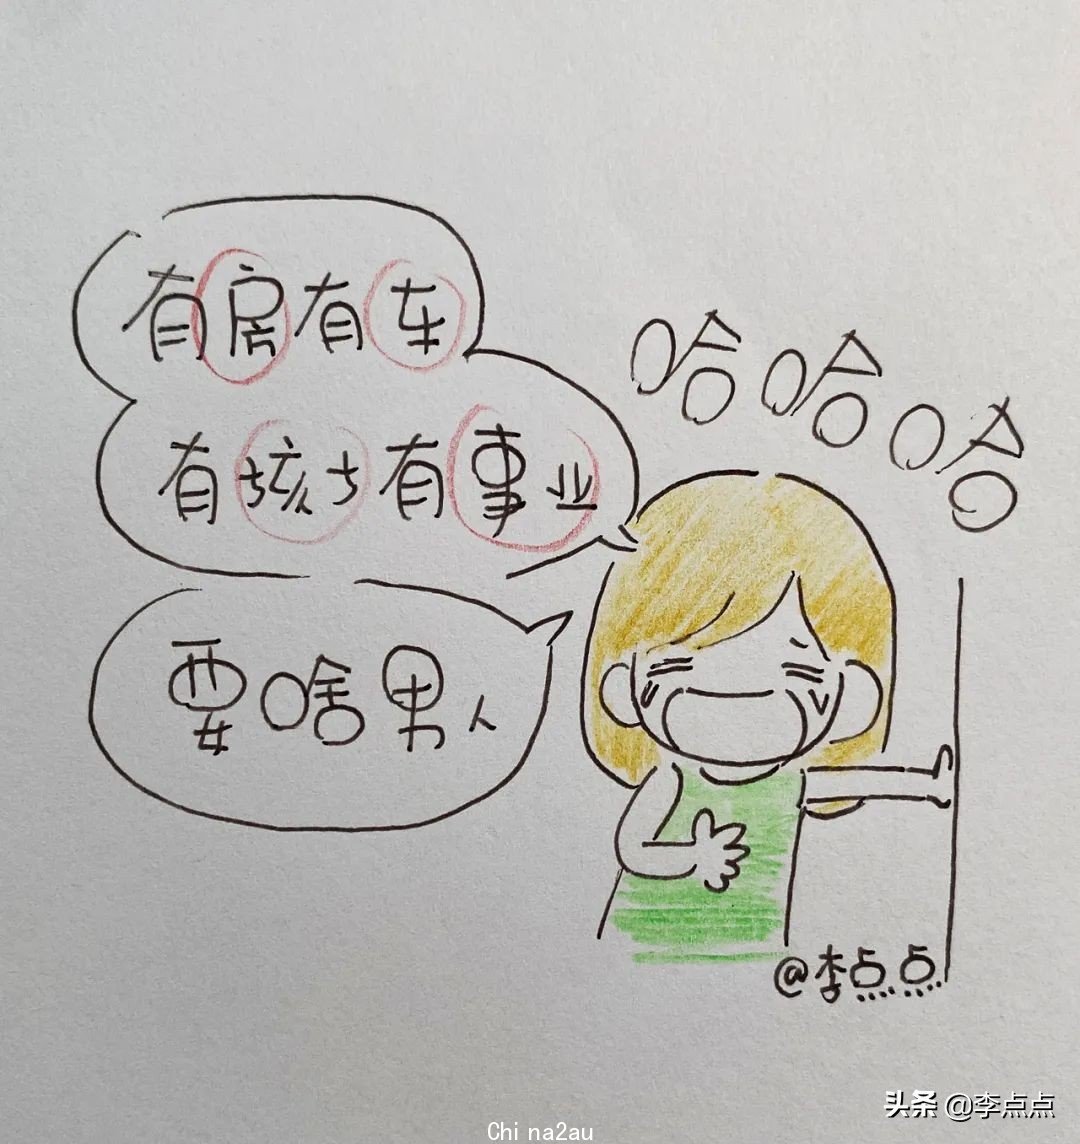 有房有车
有孩子有事业
要啥男人
哈哈哈
@李点点
头条 @李点点
Chi na2au